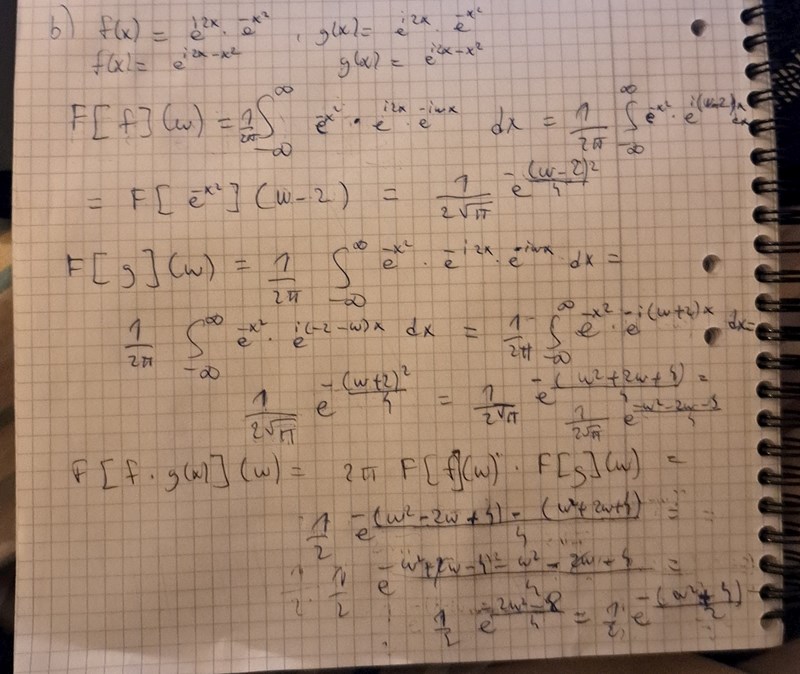 b) f(x) = e^{i2x} · e^{-x²} , g(x) = e^{i2x} · e^{-x²}
f(x) = e^{i2x-x²} g(x) = e^{i2x-x²}
F[f](w) = 1/2π ∫_{-∞}^{∞} e^{-x²} · e^{i2x} · e^{-iwx} dx = 1/2π ∫_{-∞}^{∞} e^{-x²} · e^{i(w-2)x} dx
= F[e^{-x²}](w-2) = 1/(2√π) e^{-(w-2)²/4}
F[g](w) = 1/2π ∫_{-∞}^{∞} e^{-x²} · e^{-i2x} · e^{-iwx} dx =
1/2π ∫_{-∞}^{∞} e^{-x²} · e^{i(-2-w)x} dx = 1/2π ∫_{-∞}^{∞} e^{-x²} · e^{-i(w+2)x} dx =
1/(2√π) e^{-(w+2)²/4} = 1/(2√π) e^{-(w²+2w+4)/4} =
1/(2√π) e^{(-w²-2w-4)/4}
F[f · g(x)](w) = 2π F[f](w) · F[g](w) =
1/2 e^{(-(w²-2w+4) - (w²+2w+4))/4} =
1/2 =
1/2 e^{(-2w²-8)/4} = 1/2 e^{-(w²+4)/2}